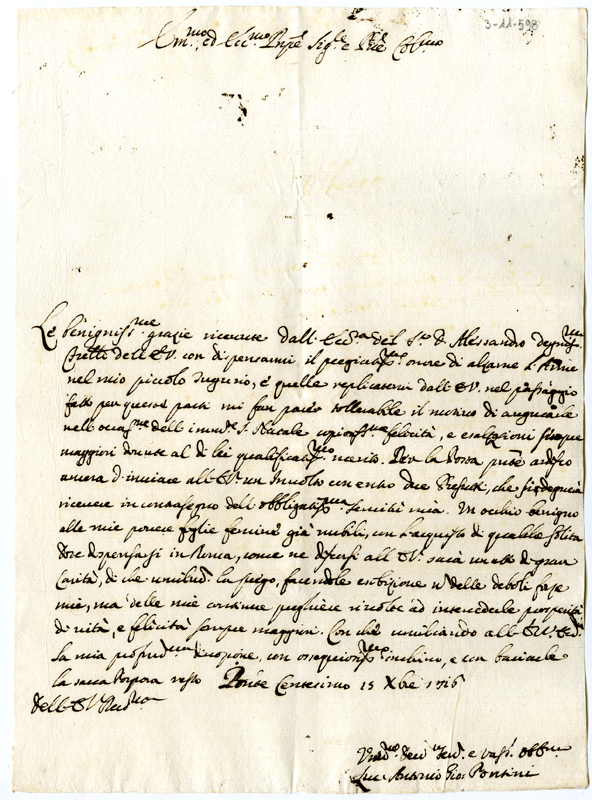 3-11-598
Em.mo, ed Ecc.mo Pnpe Sig.re e Pne Col.mo
Le benigniss.me grazie ricevute dall. Ecc.a del S.r D. Alessandro degniss.mo
Frello dell'EV. con dispensarmi il pregiatiss.o onore di alzarne l'Arme
nel mio piccolo Tugurio, e quelle replicatemi dall'EV. nel passaggio
fatto per queste parti mi fan parer tollerabile il motivo di augurarle
nell'occaz.ne dell'immin.te S. Natale copiosiss.me felicità, e esaltazioni sempre
maggiori dovute al di lei qualificatiss.mo merito. Per la Posta pnte ardisco
ancora d'inviare all'EV. un Involto con entro due Presciutti, che si degnerà
ricevere in contrasegno dell'obbligatiss.ma servitù mia. Un occhio benigno
alle mie povere figlie femine già nubili, con l'acquisto di qualche solita
dote dispensarsi in Roma, come ne discorsi all'EV. sarà un atto di gran
Carità, di che umilm.te la priego, facendole esibizione n. delle deboli forze
mie, ma delle mie continue preghiere rivolte ad intercederle prosperità
di vità, e felicità sempre maggiori. Con che umiliando all'EV.
la mia profond.ma divozione, con ossequiosiss.mo inchino, e con baciarle
la sacra Porpora resto Ponte Centesimo 15 Xbre 1716
dell'EV Rev.ma
Um.mo Dev.mo Serv.e e vass. obb.mo
Antonio Gio. Pontini